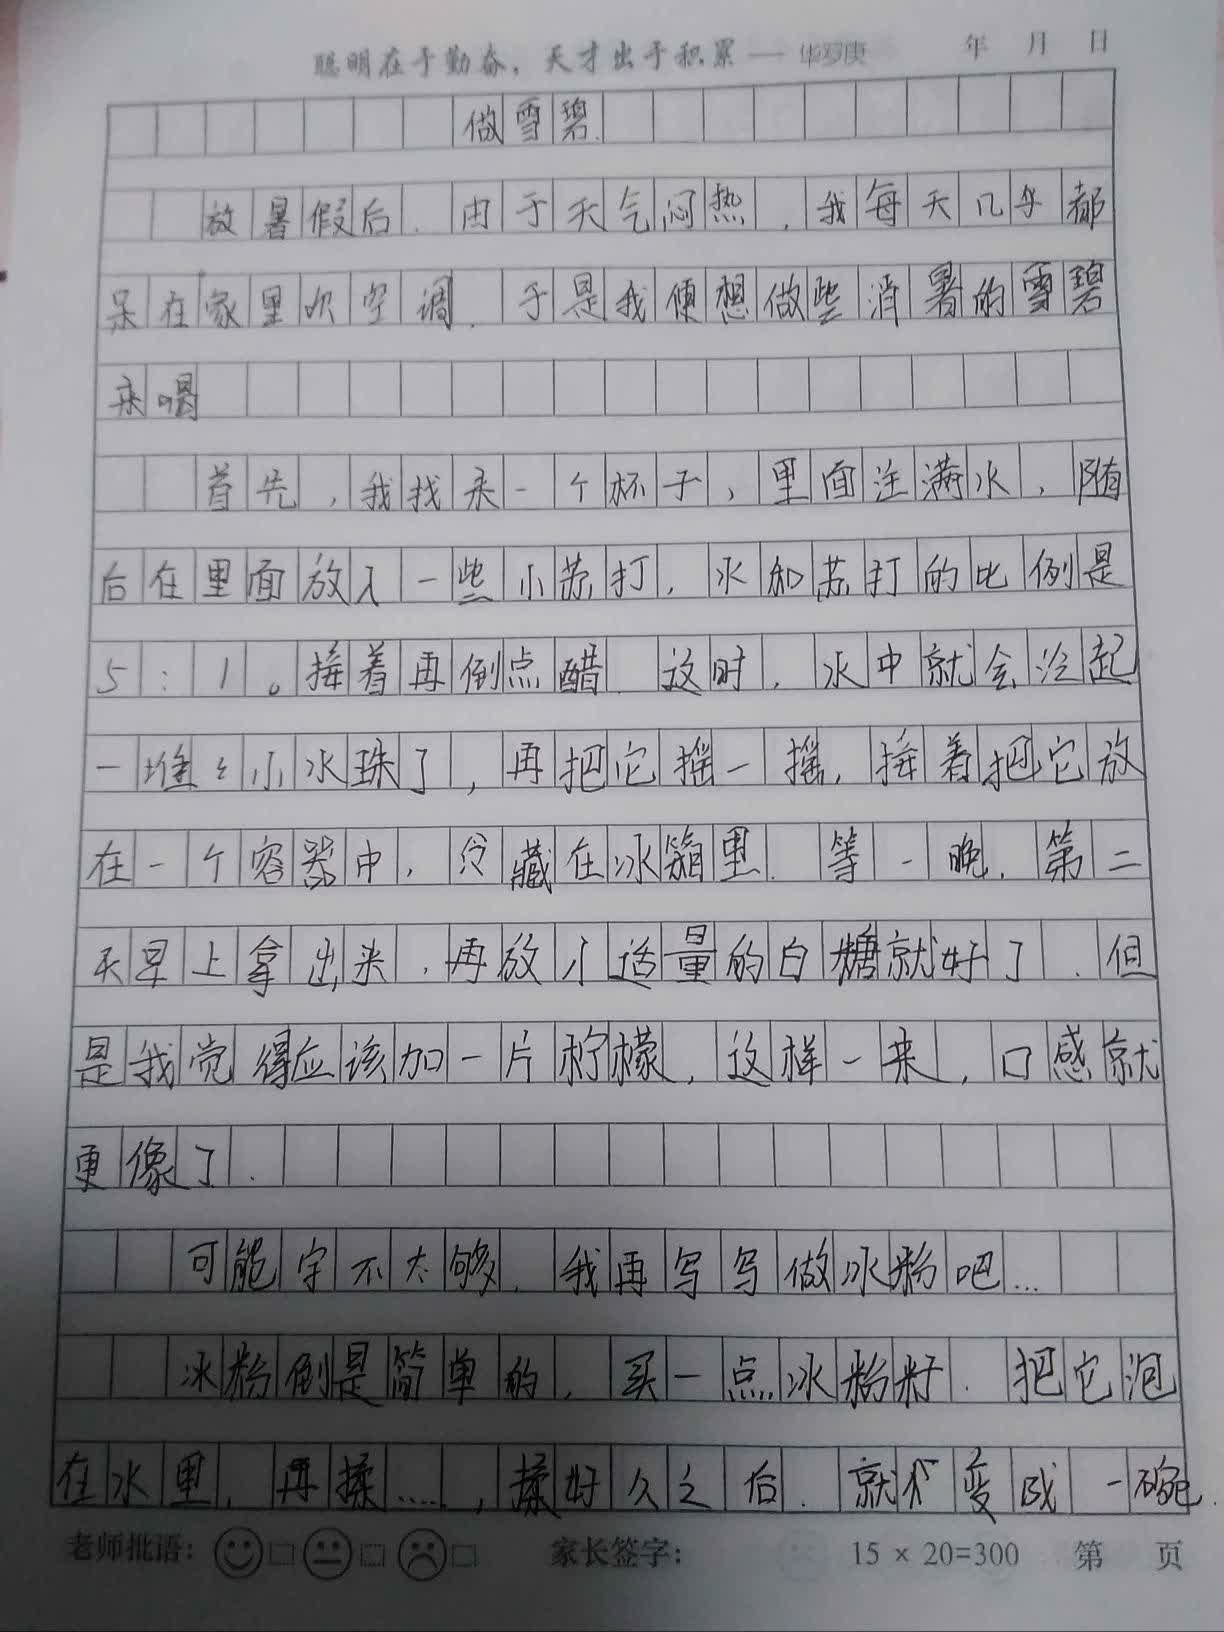 聪明在于勤奋，天才出于积累 — 华罗庚 年 月 日
做雪碧.
放暑假后.由于天气闷热，我每天几乎都
呆在家里吹空调.于是我便想做些消暑的雪碧
来喝
首先，我找来一个杯子，里面注满水，随
后在里面放入一些小苏打，水和苏打的比例是
5：1。接着再倒点醋.这时，水中就会泛起
一堆堆小水珠了，再把它摇一摇，接着把它放
在一个容器中，冷藏在冰箱里.等一晚，第二
天早上拿出来，再放小适量的白糖就好了.但
是我觉得应该加一片柠檬，这样一来，口感就
更像了.
可能字不太够.我再写写做冰粉吧...
冰粉倒是简单的，买一点冰粉籽.把它泡
在水里，再揉……，揉好久之后.就变成一碗
老师批语： 家长签字： 15 × 20=300 第 页